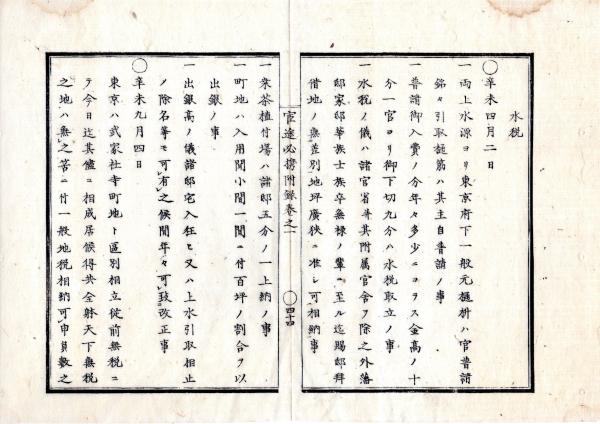 水税
○辛未四月二日
一両上水源ヨリ東京府下一般元樋枡ハ官普請
銘々引取樋筋ハ其主自普請ノ事
一普請御入費ノ分年々多少ニヨラス金高ノ十
分一官ヨリ御下切九分ハ水税取立ノ事
一水税ノ儀ハ諸官省并其附属官舎ヲ除之外藩
邸家邸華族士族卒無禄ノ輩ニ至ル迄賜邸拝
借地ノ無差別地坪廣狭ニ准シ可相納事
官途必携附録巻之一
○四十四
一桒茶植付場ハ諸邸五分ノ一上納ノ事
一町地ハ入用間小間一間ニ付百坪ノ割合ヲ以
出銀ノ事
一出銀高ノ儀諸邸宅入狂ヒ又ハ上水引取相止
ノ除名等モ可有之候間年々可致改正事
○辛未九月四日
東京ハ武家社寺町地ト區別相立従前無税ニ
テ今日迄其儘ニ相成居候得共全躰天下無税
之地ハ無之筈ニ付一般地税相納可申員数之